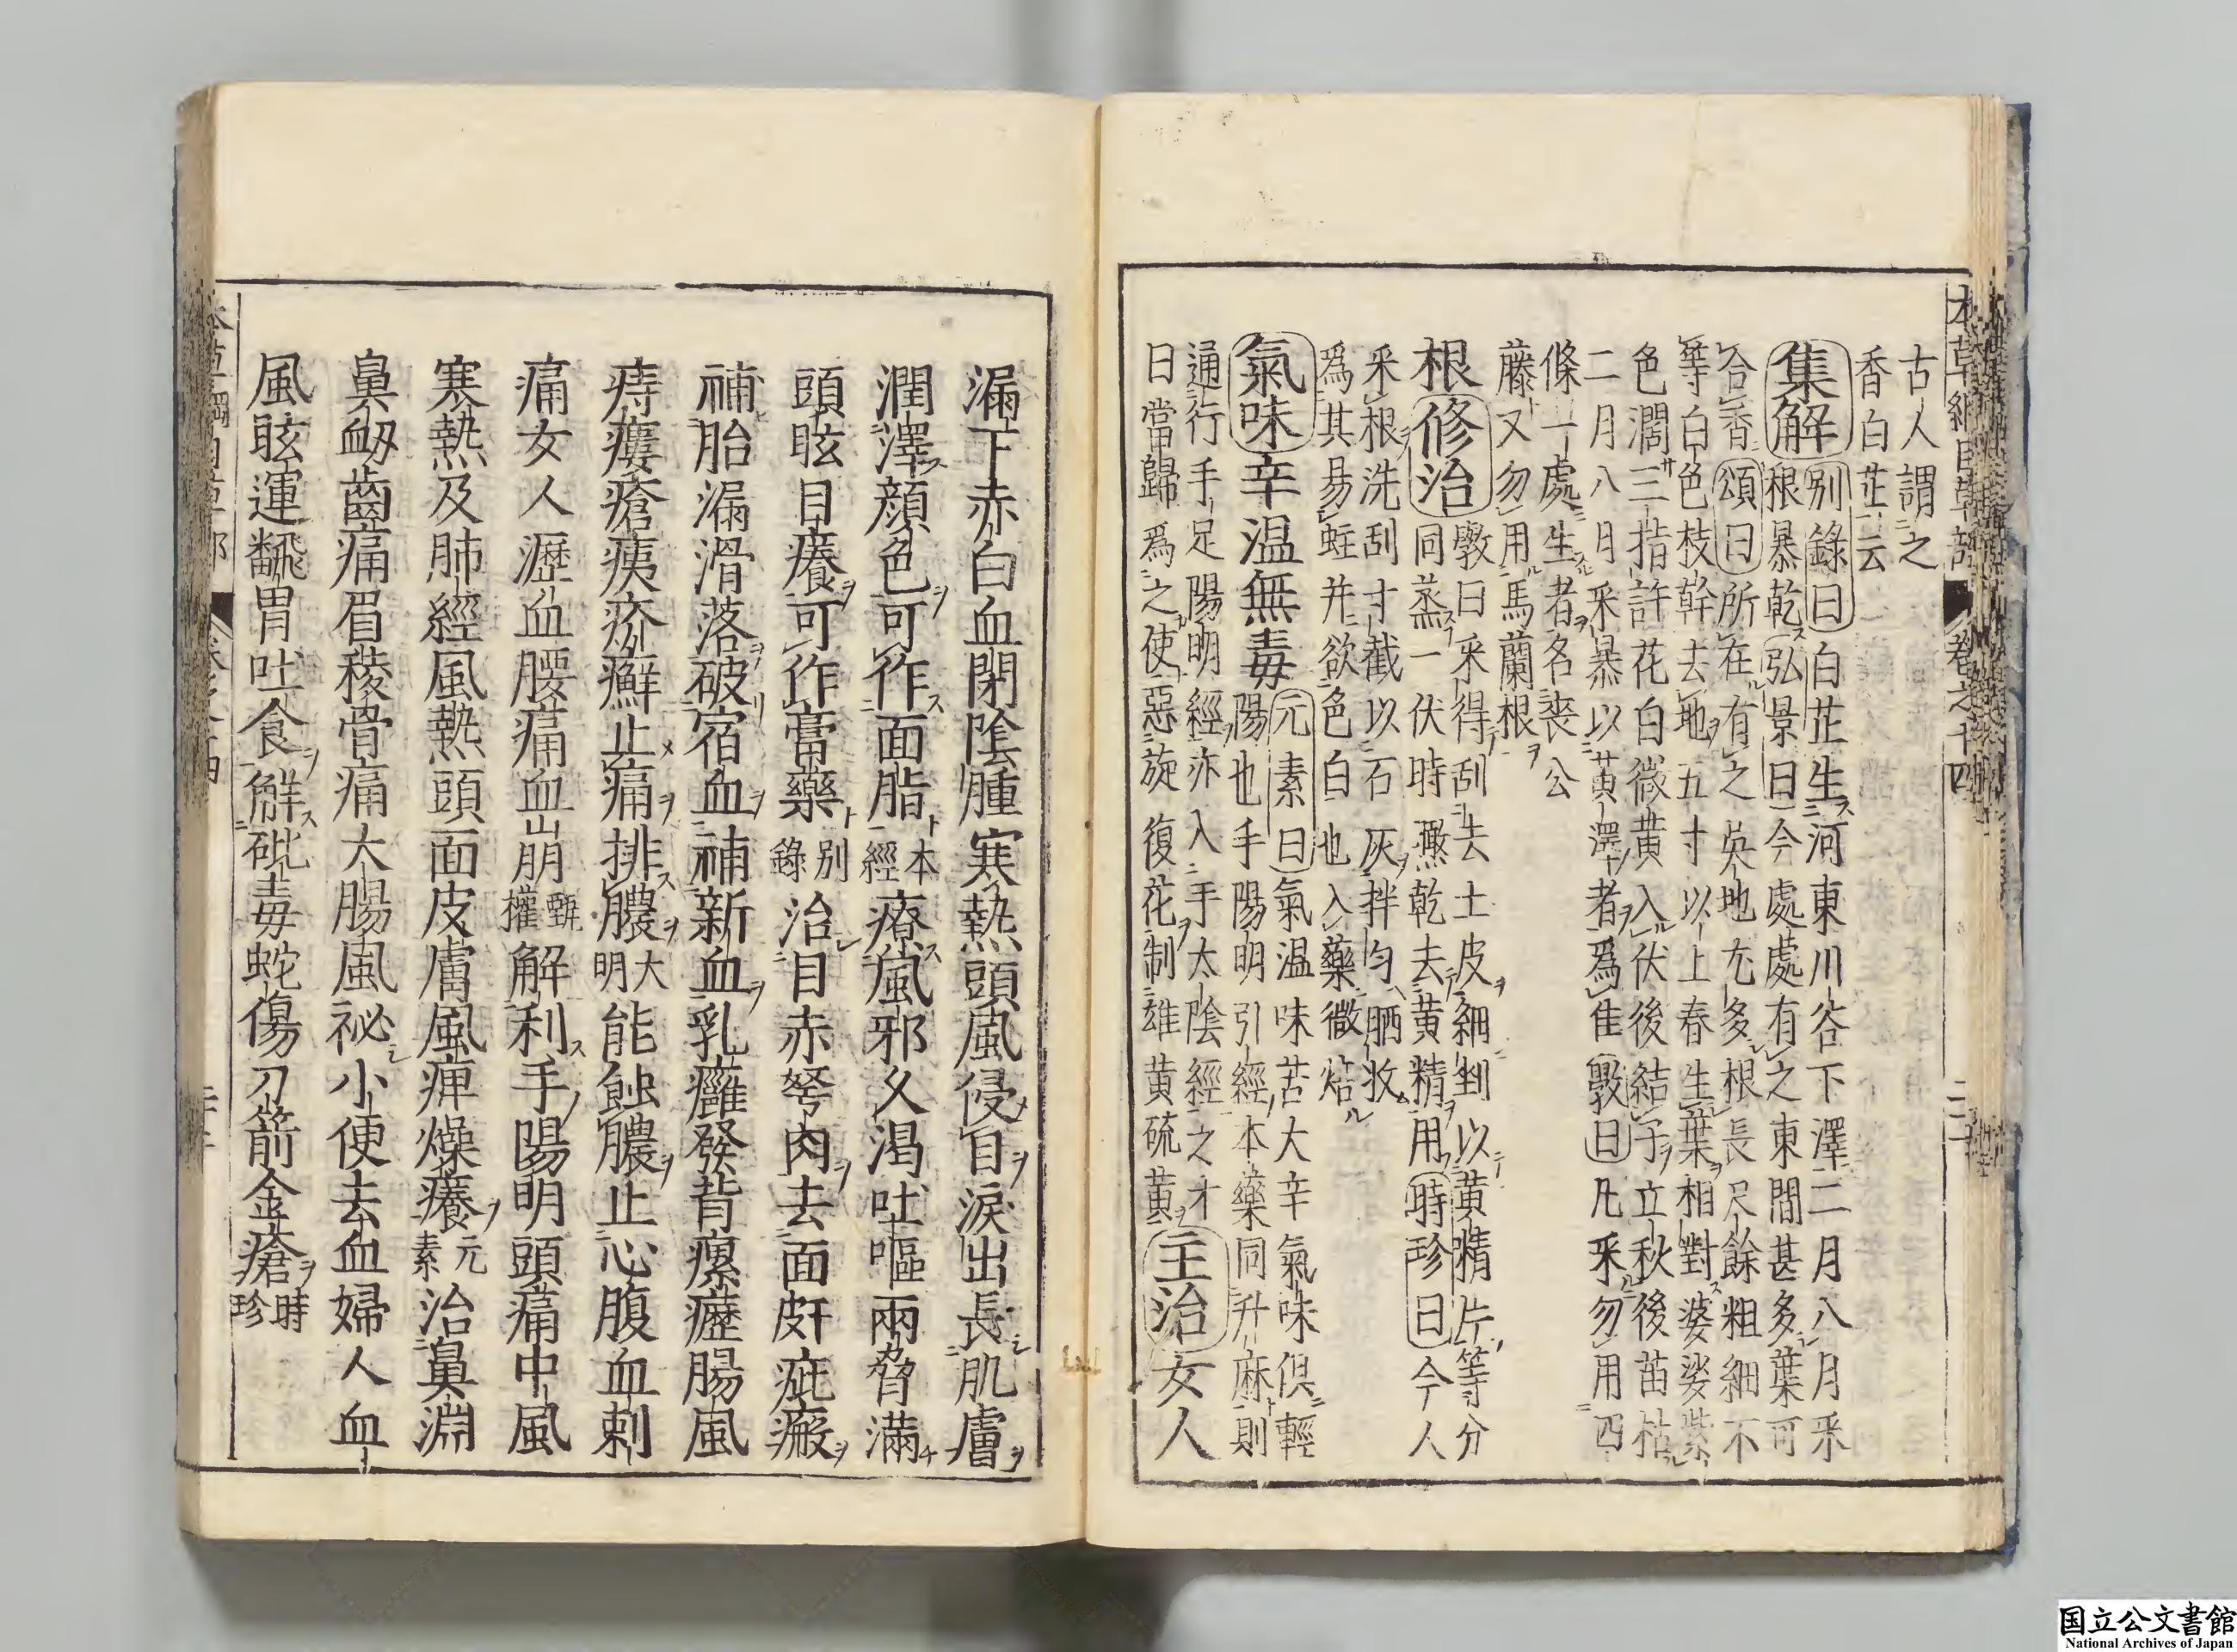 本草綱目草部 卷之十四 二十
古人謂之
香白芷云
集解別錄曰白芷生河東川谷下澤二月八月采
根暴乾弘景曰今處處有之東間甚多葉可
合香頌曰所在有之吳地尤多根長尺餘粗細不
等白色枝幹去地五寸以上春生葉相對婆娑紫
色濶三指許花白微黃入伏後結子立秋後苗枯
二月八月采暴以黃澤者爲佳斅曰凡采勿用四
條一處生者名喪公
藤又勿用馬蘭根
根修治斅曰采得刮去土皮細剉以黃精片等分
同蒸一伏時乾去黃精用時珍曰今人
采根洗刮寸截以石灰拌勻晒收
爲其易蛀并欲色白也入藥微焙
氣味辛温無毒元素曰氣温味苦大辛氣味俱輕
陽也手陽明引經本藥同升麻則
通行手足陽明經亦入手太陰經之才
曰當歸爲之使惡旋復花制雄黃硫黃主治女人
漏下赤白血閉陰腫寒熱頭風侵目淚出長肌膚
潤澤顔色可作面脂本經療風邪久渴吐嘔兩脅滿
頭眩目癢可作膏藥別錄治目赤弩肉去面皯疵瘢
補胎漏滑落破宿血補新血乳癰發背瘰癧腸風
痔瘻瘡痍疥癬止痛排膿大明能蝕膿止心腹血刺
痛女人瀝血腰痛血崩甄權解利手陽明頭痛中風
寒熱及肺經風熱頭面皮膚風痺燥癢元素治鼻淵
鼻衂齒痛眉稜骨痛大腸風祕小便去血婦人血
風眩運飜胃吐食解砒毒蛇傷刀箭金瘡時珍
国立公文書館
National Archives of Japan